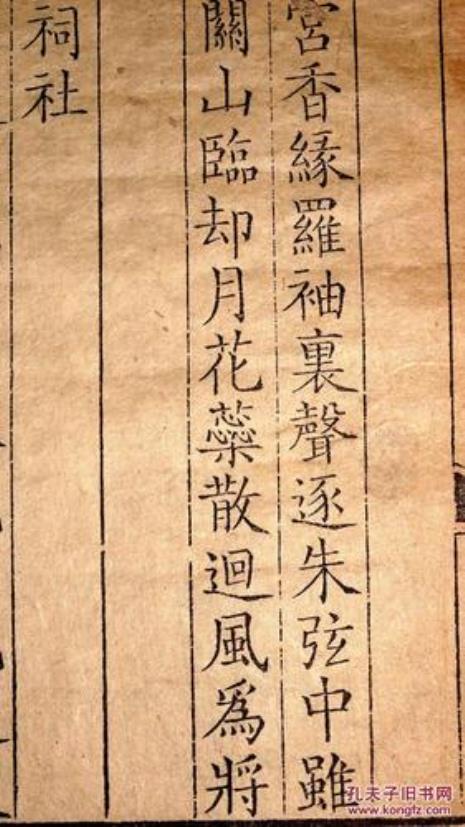 宮香緣羅袖裏聲逐朱弦中雖
關山臨却月花蘂散迴風爲將
祠社
孔夫子旧书网
www.kongfz.com